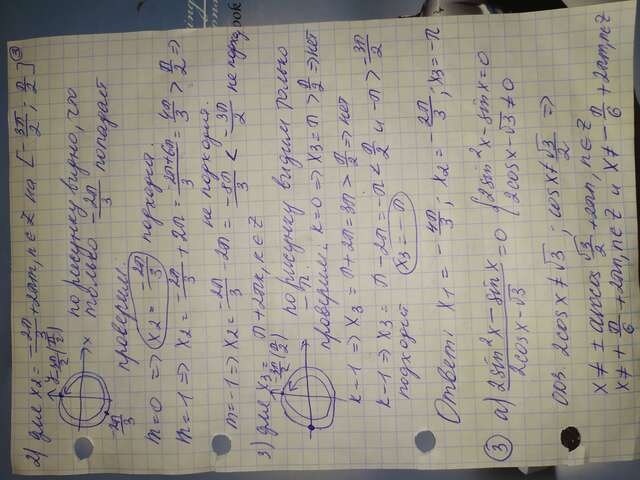 ③
2) для x2 = -2π/3 + 2πm, m∈Z на [-3π/2; π/2]
-3π/2 (π/2)
x
-2π/3
по рисунку видно, что
только -2π/3 попадает
проверим.
m=0 => x2 = -2π/3 подходит.
m=1 => x2 = -2π/3 + 2π = (-2π+6π)/3 = 4π/3 > π/2 =>
не подходит.
m=-1 => x2 = -2π/3 - 2π = -8π/3 < -3π/2 не подход
3) для x3 = π + 2πk, k∈Z
-3π/2 (π/2)
-π
по рисунку видим только
проверим: k=0 => x3 = π > π/2 => нет
k=1 => x3 = π + 2π = 3π > π/2 => нет
k-1 => x3 = π - 2π = -π < π/2 и -π > -3π/2
подходит x3 = -π
Ответ: x1 = -4π/3; x2 = -2π/3; x3 = -π
③ а) (2sin²x - sinx)/(2cosx - √3) = 0 { 2sin²x - sinx = 0
2cosx - √3 ≠ 0
ОДЗ 2cosx ≠ √3; cosx ≠ √3/2 =>
x ≠ ± arccos √3/2 + 2πn, n∈Z
x ≠ + π/6 + 2πn, n∈Z и x ≠ -π/6 + 2πm, m∈Z